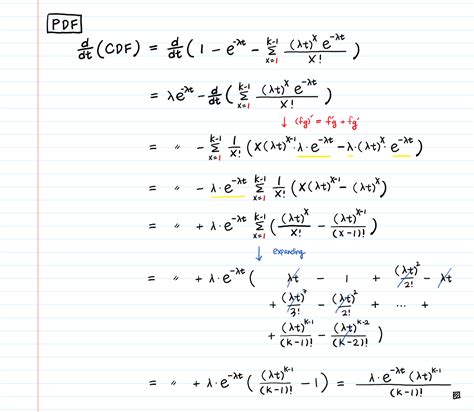 PDF
d/dt (CDF) = d/dt ( 1 - e^-λt - Σ_{x=1}^{k-1} (λt)^x e^-λt / x! )
= λe^-λt - d/dt ( Σ_{x=1}^{k-1} (λt)^x e^-λt / x! )
↓ (fg)' = f'g + fg'
= 〃 - Σ_{x=1}^{k-1} 1/x! ( x(λt)^x-1 · λ · e^-λt - λ · (λt)^x · e^-λt )
= 〃 - λ · e^-λt Σ_{x=1}^{k-1} 1/x! ( x(λt)^x-1 - (λt)^x )
= 〃 + λ · e^-λt Σ_{x=1}^{k-1} ( (λt)^x / x! - (λt)^x-1 / (x-1)! )
↓ expanding
= 〃 + λ · e^-λt ( λt - 1 + (λt)^2 / 2! - λt
+ (λt)^3 / 3! - (λt)^2 / 2! + ... +
+ (λt)^k-1 / (k-1)! - (λt)^k-2 / (k-2)! )
= 〃 + λ · e^-λt ( (λt)^k-1 / (k-1)! - 1 ) = λ · e^-λt (λt)^k-1 / (k-1)!